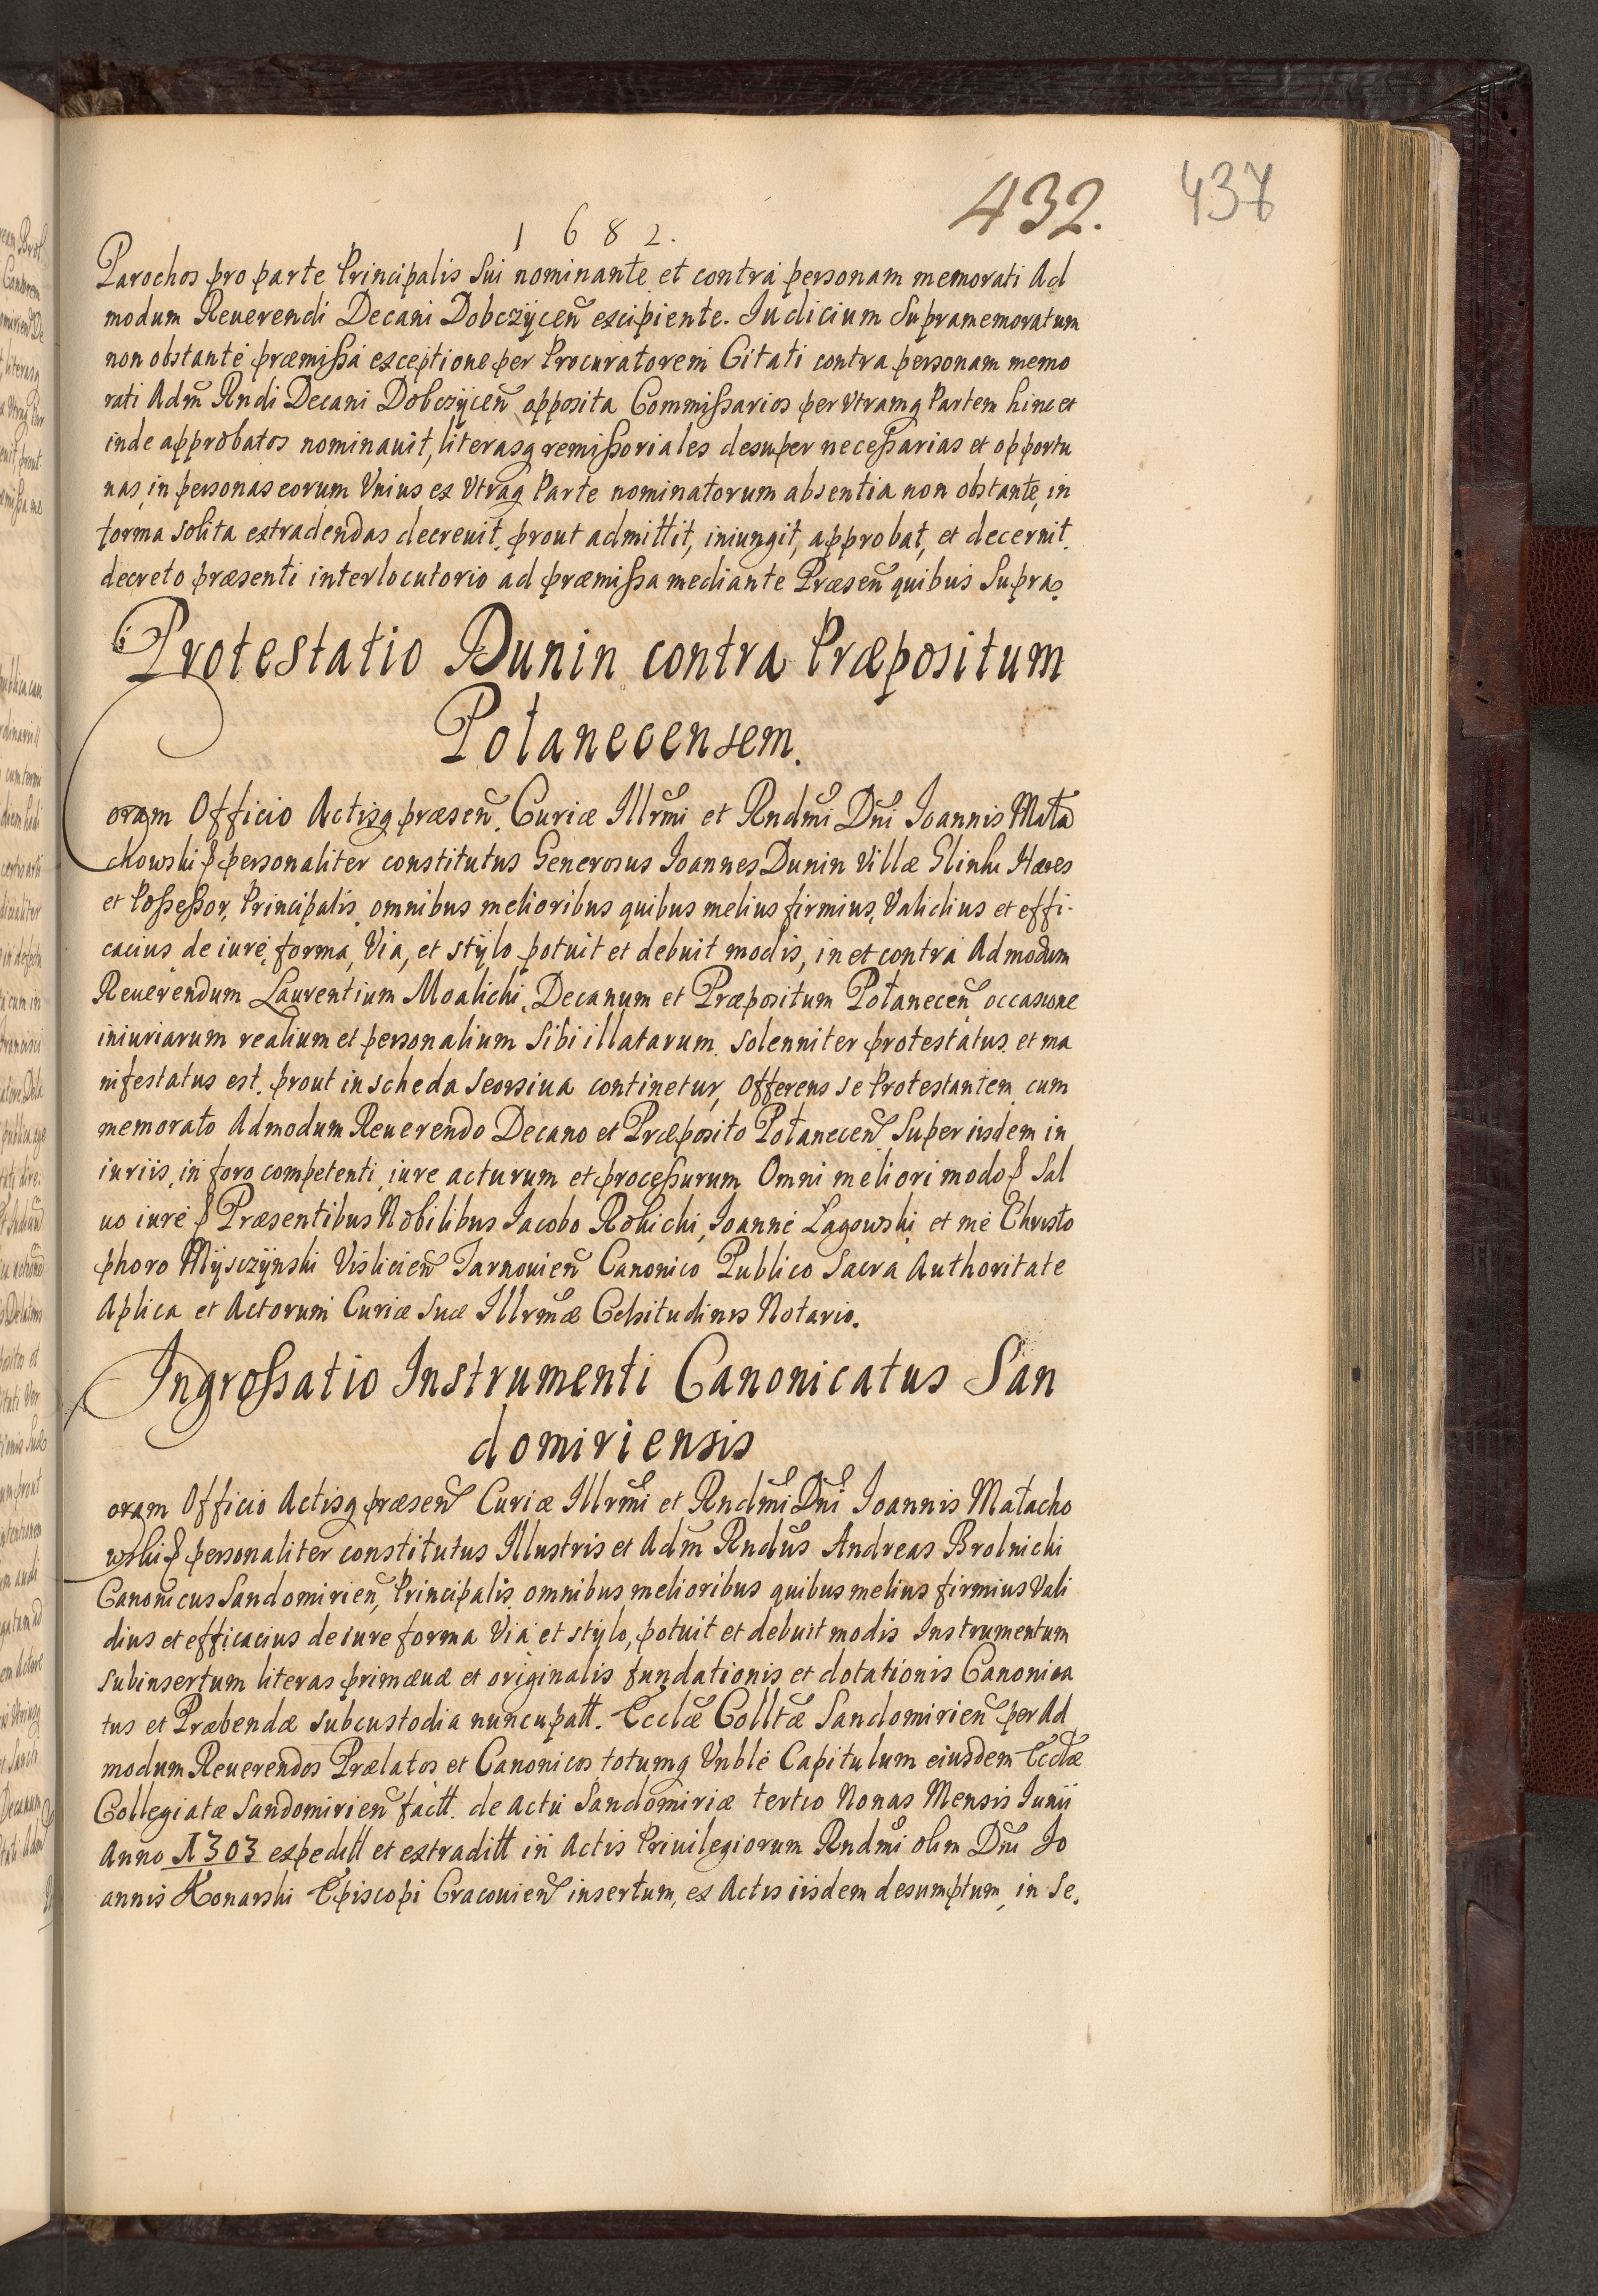 432.
437
1682.
Parochos pro parte Principalis sui nominante et contra personam memorati Ad
modum Reuerendi Decani Dobczÿcen̄ excipiente. Iudicium supramemoratum
non obstante præmissa exceptione per Procuratorem Citati contra personam memo
rati Adm̄ Rndi Decani Dobczÿcen̄ opposita Commissarios per Vtramq Partem hinc et
inde approbatos nominauit, literasq remissoriales desuper necessarias et opportu
nas, in personas eorum Vnius ex Vtraq Parte nominatorum absentia non obstante, in
forma solita extradendas decreuit, prout admittit, iniungit, approbat, et decernit
decreto præsenti interlocutorio ad præmissa mediante Præsen̄ quibus supra.
Protestatio Dunin contra Præpositum
Połanecensem.
Coram Officio Actisq præsen̄. Curiæ Illrmi et Rndmi Dn̄i Ioannis Mała
chowski ꝑ personaliter constitutus Generosus Ioannes Dunin Villæ Glinki Hæres
et Possessor, Principalis, omnibus melioribus quibus melius firmius, Validius et effi-
cacius de iure, forma, Via, et stÿlo potuit et debuit modis, in et contra Admodum
Reuerendum Laurentium Moalichi, Decanum et Præpositum Połanecen̄ occasione
iniuriarum realium et personalium sibi illatarum solenniter protestatus et ma
nifestatus est, prout in scheda seorsiua continetur, Offerens se Protestantem cum
memorato Admodum Reuerendo Decano et Præposito Połanecen̄ super iisdem in
iuriis, in foro competenti, iure acturum et processurum Omni meliori modo ꝑ Sal
uo iure ꝑ Præsentibus Nobilibus Iacobo Rokicki, Ioanne Lagowski, et me Christo
phoro Mÿsczÿnski Vislicien̄ Tarnouien̄ Canonico Publico Sacra Authoritate
Aplica et Actorum Curiæ suæ Illrmæ Celsitudinis Notario.
Ingrossatio Instrumenti Canonicatus San
domiriensis
Coram Officio Actisq præsen̄ Curiæ Illrmi et Rndmi Dn̄i Ioannis Małacho
wski ꝑ personaliter constitutus Illustris et Adm̄ Rndus Andreas Brolnicki
Canonicus Sandomirien̄, Principalis, omnibus melioribus quibus melius firmius Vali
dius et efficacius de iure forma Via et stÿlo, potuit et debuit modis Instrumentum
subinsertum literas primæuæ et originalis fundationis et dotationis Canonica
tus et Præbendæ subcustodia nuncupatt. Ecclæ Colltæ Sandomirien̄ per Ad
modum Reuerendos Prælatos et Canonicos totumq Vnble Capitulum eiusdem Ecclæ
Collegiatæ Sandomirien̄ factt. de Actu Sandomiriæ tertio Nonas Mensis Iunii
Anno 1303 expeditt et extraditt in Actis Priuilegiorum Rndmi olim Dn̄i Io
annis Konarski Episcopi Cracouien̄ insertum, ex Actis iisdem desumptum, in se.